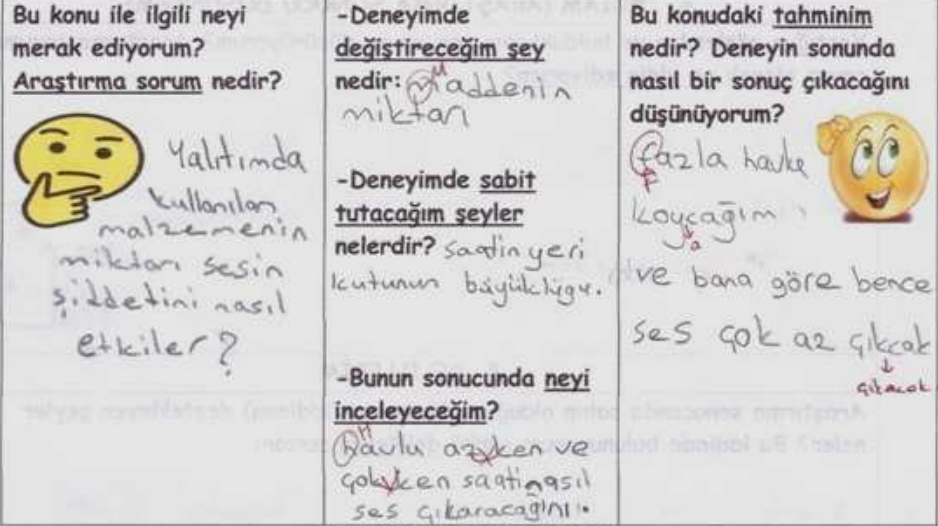 Bu konu ile ilgili neyi
merak ediyorum?
Araştırma sorum nedir?
Yalıtımda
kullanılan
malzemenin
miktarı sesin
şiddetini nasıl
etkiler?
-Deneyimde
değiştireceğim şey
nedir: maddenin
M
miktarı
-Deneyimde sabit
tutacağım şeyler
nelerdir? saatin yeri
kutunun büyüklüğü.
-Bunun sonucunda neyi
inceleyeceğim?
H
havlu azken ve
çokken saatinasıl
ses çıkaracağını.
Bu konudaki tahminim
nedir? Deneyin sonunda
nasıl bir sonuç çıkacağını
düşünüyorum?
fazla havlu
F
koycağım
a
ve bana göre bence
ses çok az çıkcak
çıkacak